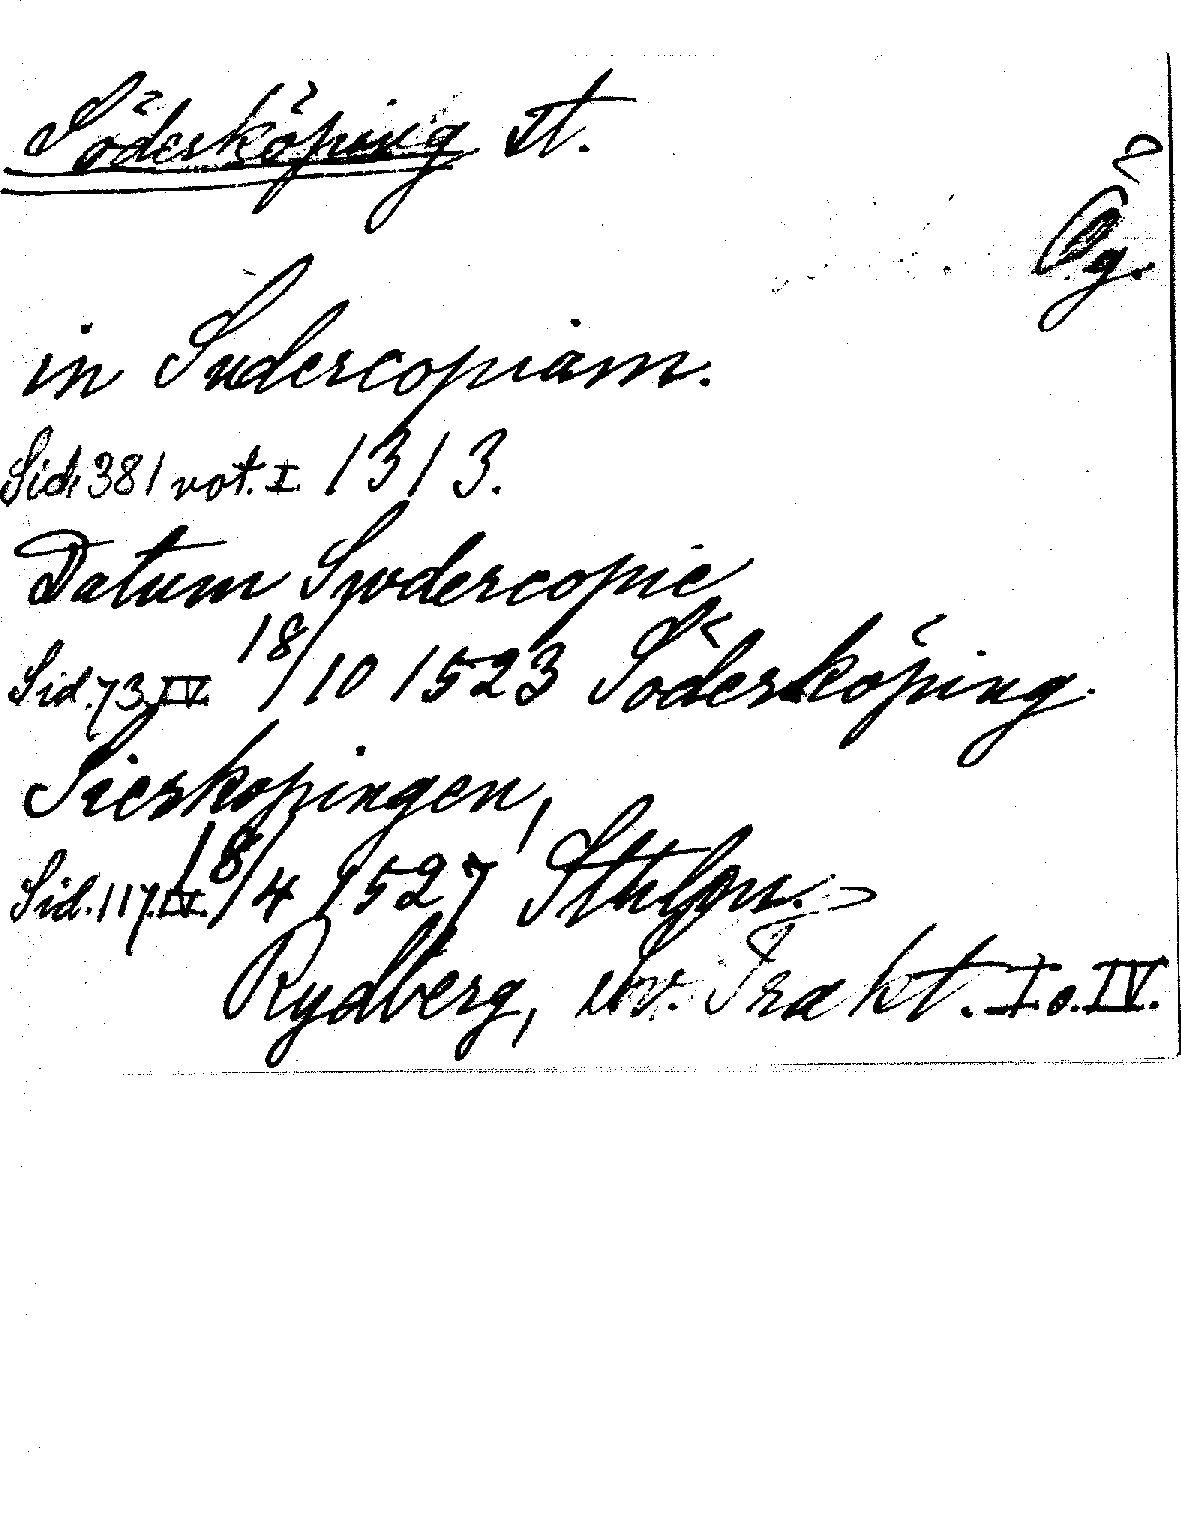 Söderköping St.
Ög.
in Sudercopiam.
Sid. 381 not. I. 1313.
Datum Swdercopie
Sid. 73. IV. 18/10 1523 Söderköping.
Sierkopingen,
Sid. 117. IV. 18/4 1527 Sthlm.
Rydberg, Sv. Trakt. I o. IV.